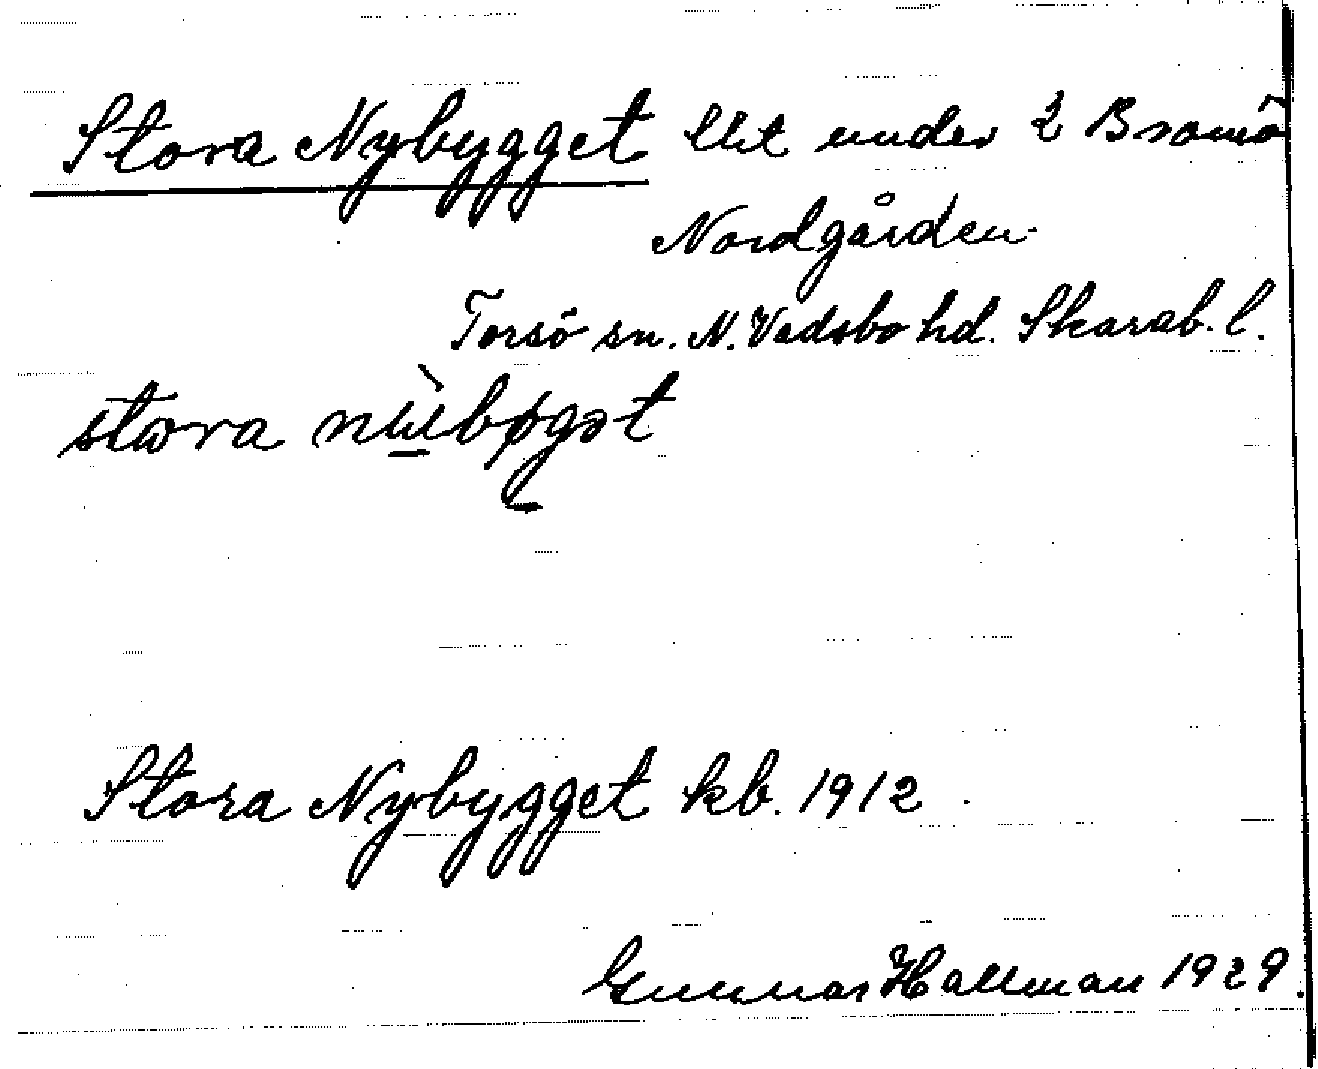 Stora Nybygget lht under 2 Bromö
Nordgården
Torsö sn. N. Vadsbo hd. Skarab. l.
stora
Stora Nybygget kb. 1912.
Gunnar Hallman 1929.